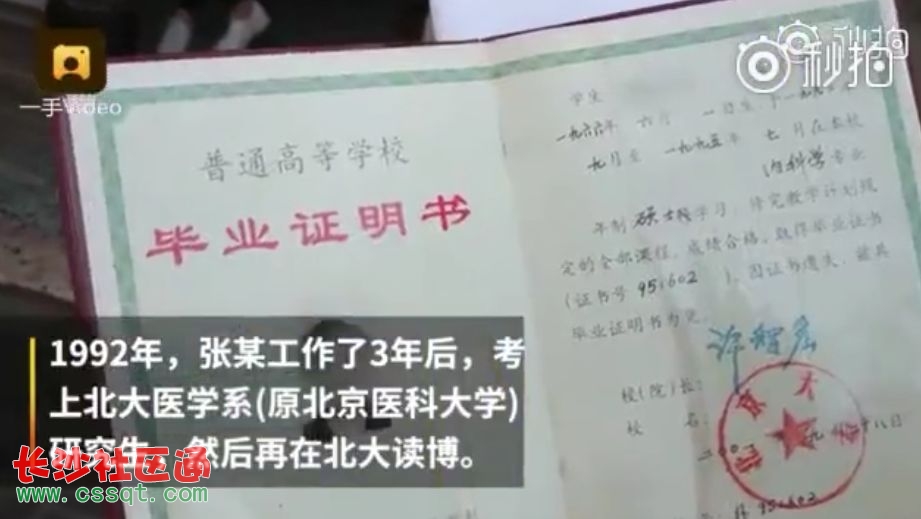 一手Video
秒拍
秒拍
普通高等学校
毕业证明书
学生
一九六六年 六月 一日生,于一九九
九月至 一九九五年 七月在本校
内科学专业
年制 硕士班学习,修完教学计划规
定的全部课程,成绩合格,取得毕业证书
(证书号 951602 )。因证书遗失,兹具
毕业证明书为凭。
许智宏
校(院)长:
校 名:
951602
1992年,张某工作了3年后,考
上北大医学系(原北京医科大学)
研究生,然后再在北大读博。
长沙社区通
www.cssqt.com